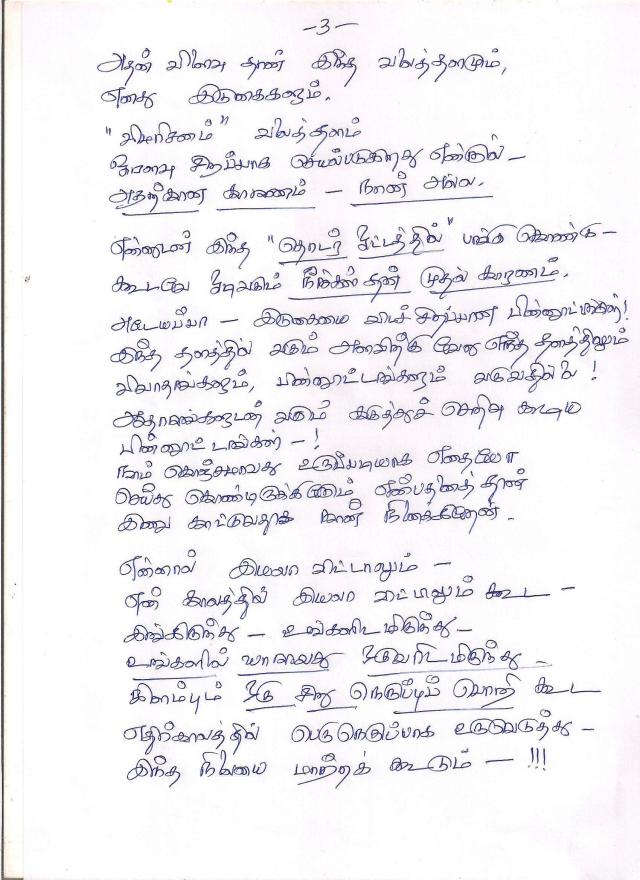 -3-
அதன் விளைவு தான் இந்த வலைத்தளமும்,
எனது இடுகைகளும்.
"விமரிசனம்" வலைத்தளம்
ஓரளவு சிறப்பாக செயல்படுகிறது என்றால் -
அதற்கான காரணம் - நான் அல்ல.
என்னுடன் இந்த "தொடர் ஓட்டத்தில்" பங்கு கொண்டு -
கூடவே ஓடிவரும் நீங்கள் தான் முதல் காரணம்.
அடேயப்பா - இடுகையை விடச் சிறப்பான பின்னூட்டங்கள்!
இந்த தளத்தில் வரும் அளவிற்கு வேறு எந்த தளத்திலும்
விவாதங்களும், பின்னூட்டங்களும் வருவதில்லை!
ஆதாரங்களுடன் வரும் கருத்துச் செறிவு கூடிய
பின்னூட்டங்கள் - !
நாம் கொஞ்சமாவது உருப்படியாக எதையோ
செய்து கொண்டிருக்கிறோம் என்பதைத் தான்
இவை காட்டுவதாக நான் நினைக்கிறேன்.
என்னால் இயலா விட்டாலும் -
என் காலத்தில் இயலா விட்டாலும் கூட -
இங்கிருந்து - உங்களிடமிருந்து -
உங்களில் யாராவது ஒருவரிடமிருந்து -
கிளம்பும் ஒரு சிறு நெருப்புப் பொறி கூட
எதிர்காலத்தில் பெருநெருப்பாக உருவெடுத்து -
இந்த நிலையை மாற்றக் கூடும் - !!!